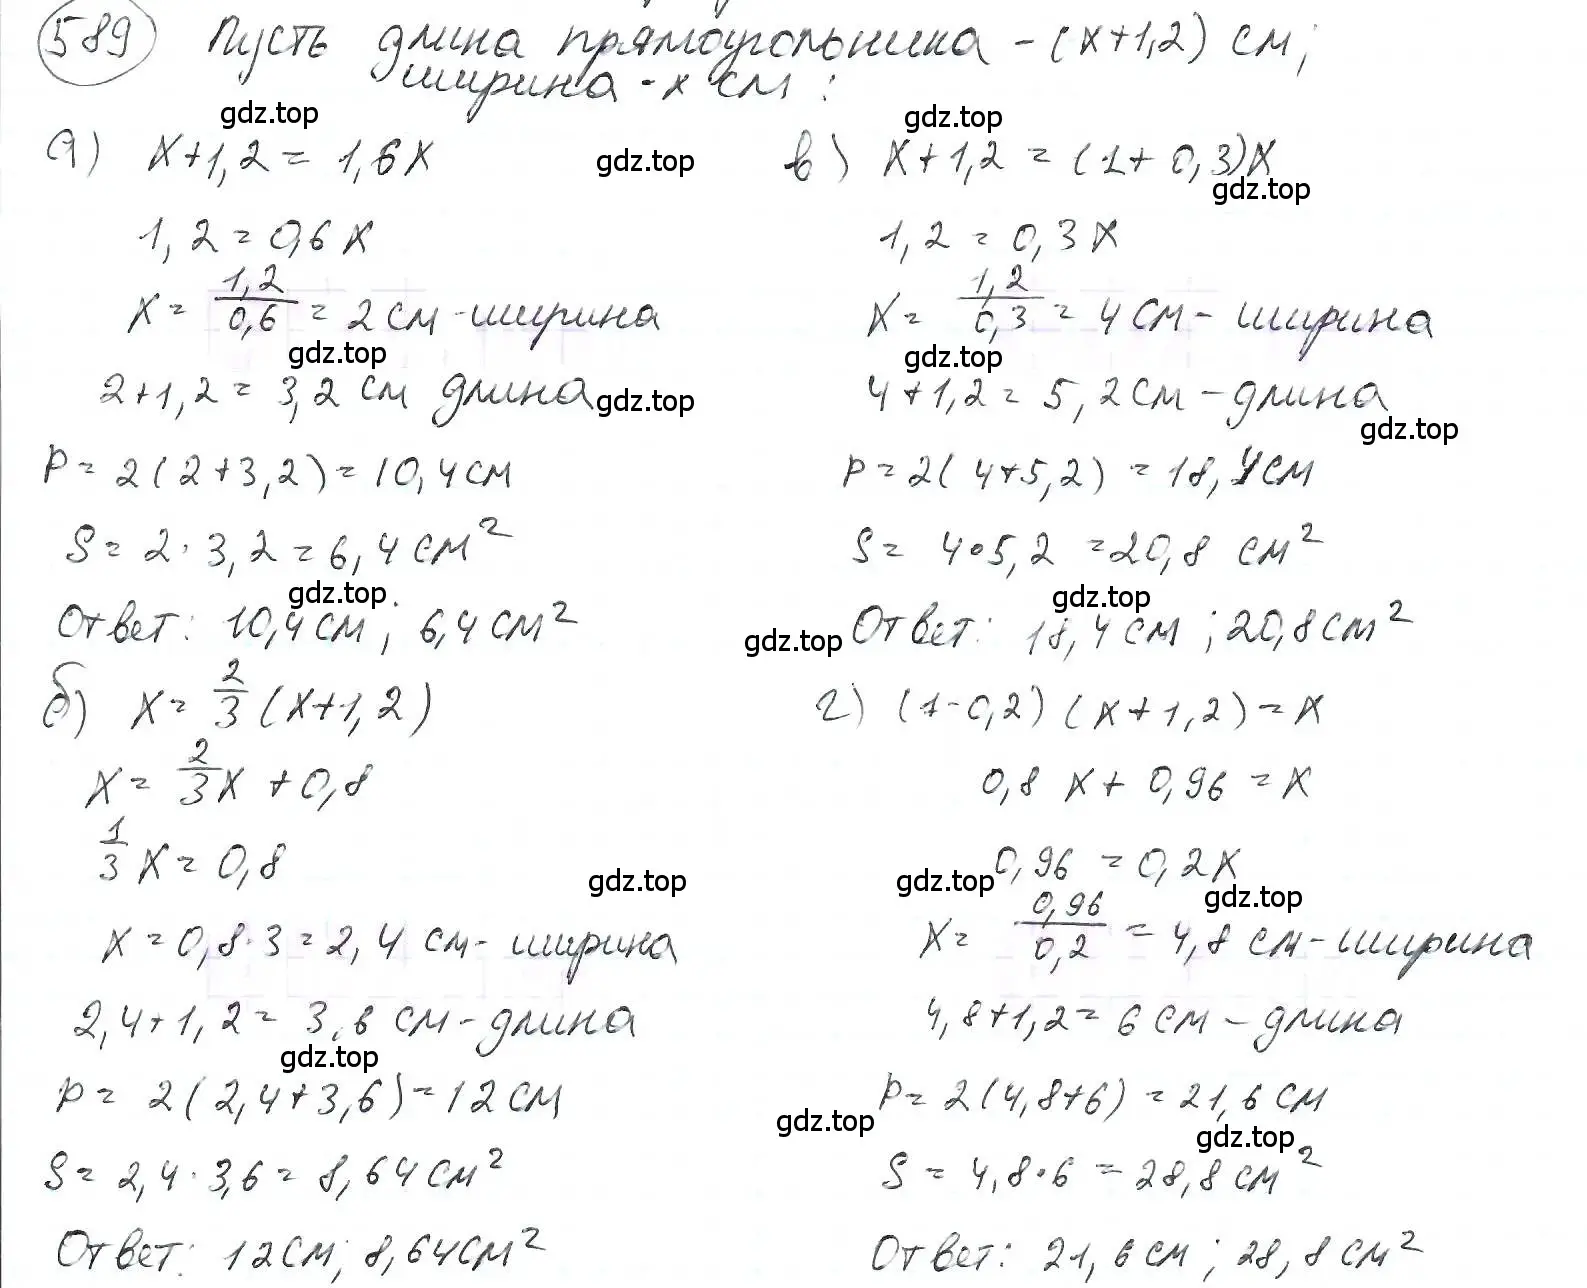 589 Пусть длина прямоугольника - (x+1,2) см;
ширина - x см:
gdz.top
а) x+1,2 = 1,6x
gdz.top
1,2 = 0,6x
x = 1,2/0,6 = 2 см - ширина
gdz.top
2+1,2 = 3,2 см длина
gdz.top
P = 2(2+3,2) = 10,4 см
S = 2 · 3,2 = 6,4 см²
gdz.top
Ответ: 10,4 см; 6,4 см²
б) x = 2/3 (x+1,2)
x = 2/3 x + 0,8
1/3 x = 0,8
gdz.top
x = 0,8 · 3 = 2,4 см - ширина
2,4+1,2 = 3,6 см - длина
gdz.top
P = 2(2,4+3,6) = 12 см
S = 2,4 · 3,6 = 8,64 см²
Ответ: 12 см; 8,64 см²
gdz.top
в) x+1,2 = (1+0,3)x
gdz.top
1,2 = 0,3x
x = 1,2/0,3 = 4 см - ширина
gdz.top
4+1,2 = 5,2 см - длина
gdz.top
P = 2(4+5,2) = 18,4 см
S = 4 · 5,2 = 20,8 см²
gdz.top
gdz.top
Ответ: 18,4 см; 20,8 см²
г) (1-0,2)(x+1,2) = x
0,8x + 0,96 = x
0,96 = 0,2x
gdz.top
gdz.top
x = 0,96/0,2 = 4,8 см - ширина
4,8+1,2 = 6 см - длина
P = 2(4,8+6) = 21,6 см
gdz.top
gdz.top
S = 4,8 · 6 = 28,8 см²
Ответ: 21,6 см; 28,8 см²